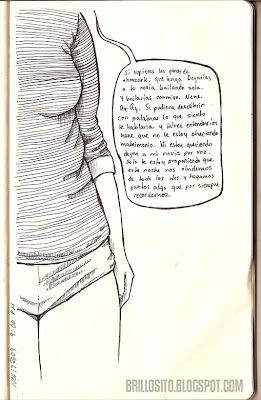 Si supieras las ganas de
abrazarte, que tengo. Dejarías
a tu novia bailando sola.
Y bailarías conmigo. Nene.
Ay. Ay. Si pudiera describir
con palabras lo que siento
te hablaría y
que no te estoy ofreciendo
matrimonio. Ni estoy queriendo
dejes a mi novia por vos.
Solo te estoy proponiendo que
esta noche nos olvidemos
de todo los dos y hagamos
juntos algo que por siempre
recordemos.
NOV 17 2009 9:00 PM
BRILLOSITO.BLOGSPOT.COM